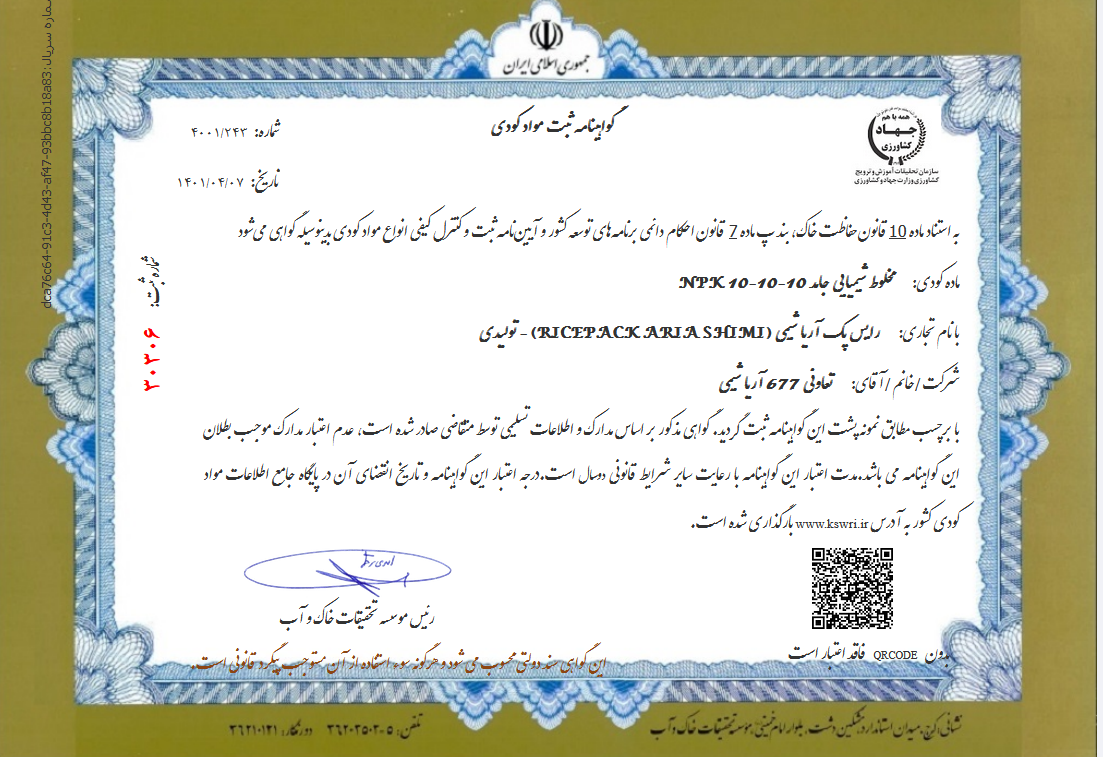 جمهوری اسلامی ایران
همه با هم
جهـاد
کشاورزی
سازمان تحقیقات آموزش و ترویج
کشاورزی وزارت جهاد کشاورزی
گواهینامه ثبت مواد کودی
شماره: ۴۰۰۱/۲۴۳
تاریخ: ۱۴۰۱/۰۴/۰۷
به استناد ماده 10 قانون حفاظت خاک، بند پ ماده 7 قانون احکام دائمی برنامه های توسعه کشور و آیین‌نامه ثبت و کنترل کیفی انواع مواد کودی بدینوسیله گواهی می‌شود
ماده کودی: مخلوط شیمیایی جامد NPK 10-10-10
با نام تجاری: رایس پک آریا شیمی (RICEPACK ARIA SHIMI) - تولیدی
شرکت/خانم/آقای: تعاونی 677 آریا شیمی
با برچسب مطابق نمونه پشت این گواهینامه ثبت گردید. گواهی مذکور بر اساس مدارک و اطلاعات تسلیمی توسط متقاضی صادر شده است، عدم اعتبار مدارک موجب بطلان
این گواهینامه می باشد.مدت اعتبار این گواهینامه با رعایت سایر شرایط قانونی دوسال است.درجه اعتبار این گواهینامه و تاریخ انقضای آن در پایگاه جامع اطلاعات مواد
کودی کشور به آدرس www.kswri.ir بارگذاری شده است.
شماره ثبت: ۳۰۳۰۶
شماره سریال:dca76c64-91c3-4d43-af47-93bbc8b18a83
رئیس موسسه تحقیقات خاک و آب
بدون QRCODE فاقد اعتبار است
این گواهی سند دولتی محسوب می شود و هرگونه سوء استفاده از آن مستوجب پیگرد قانونی است.
نشانی: کرج، میدان استاندارد، مشکین دشت، بلوار امام خمینی، موسسه تحقیقات خاک و آب
تلفن: ۵-۳۶۲۰۲۵۰۲ دورنگار: ۳۶۲۱۰۱۲۱